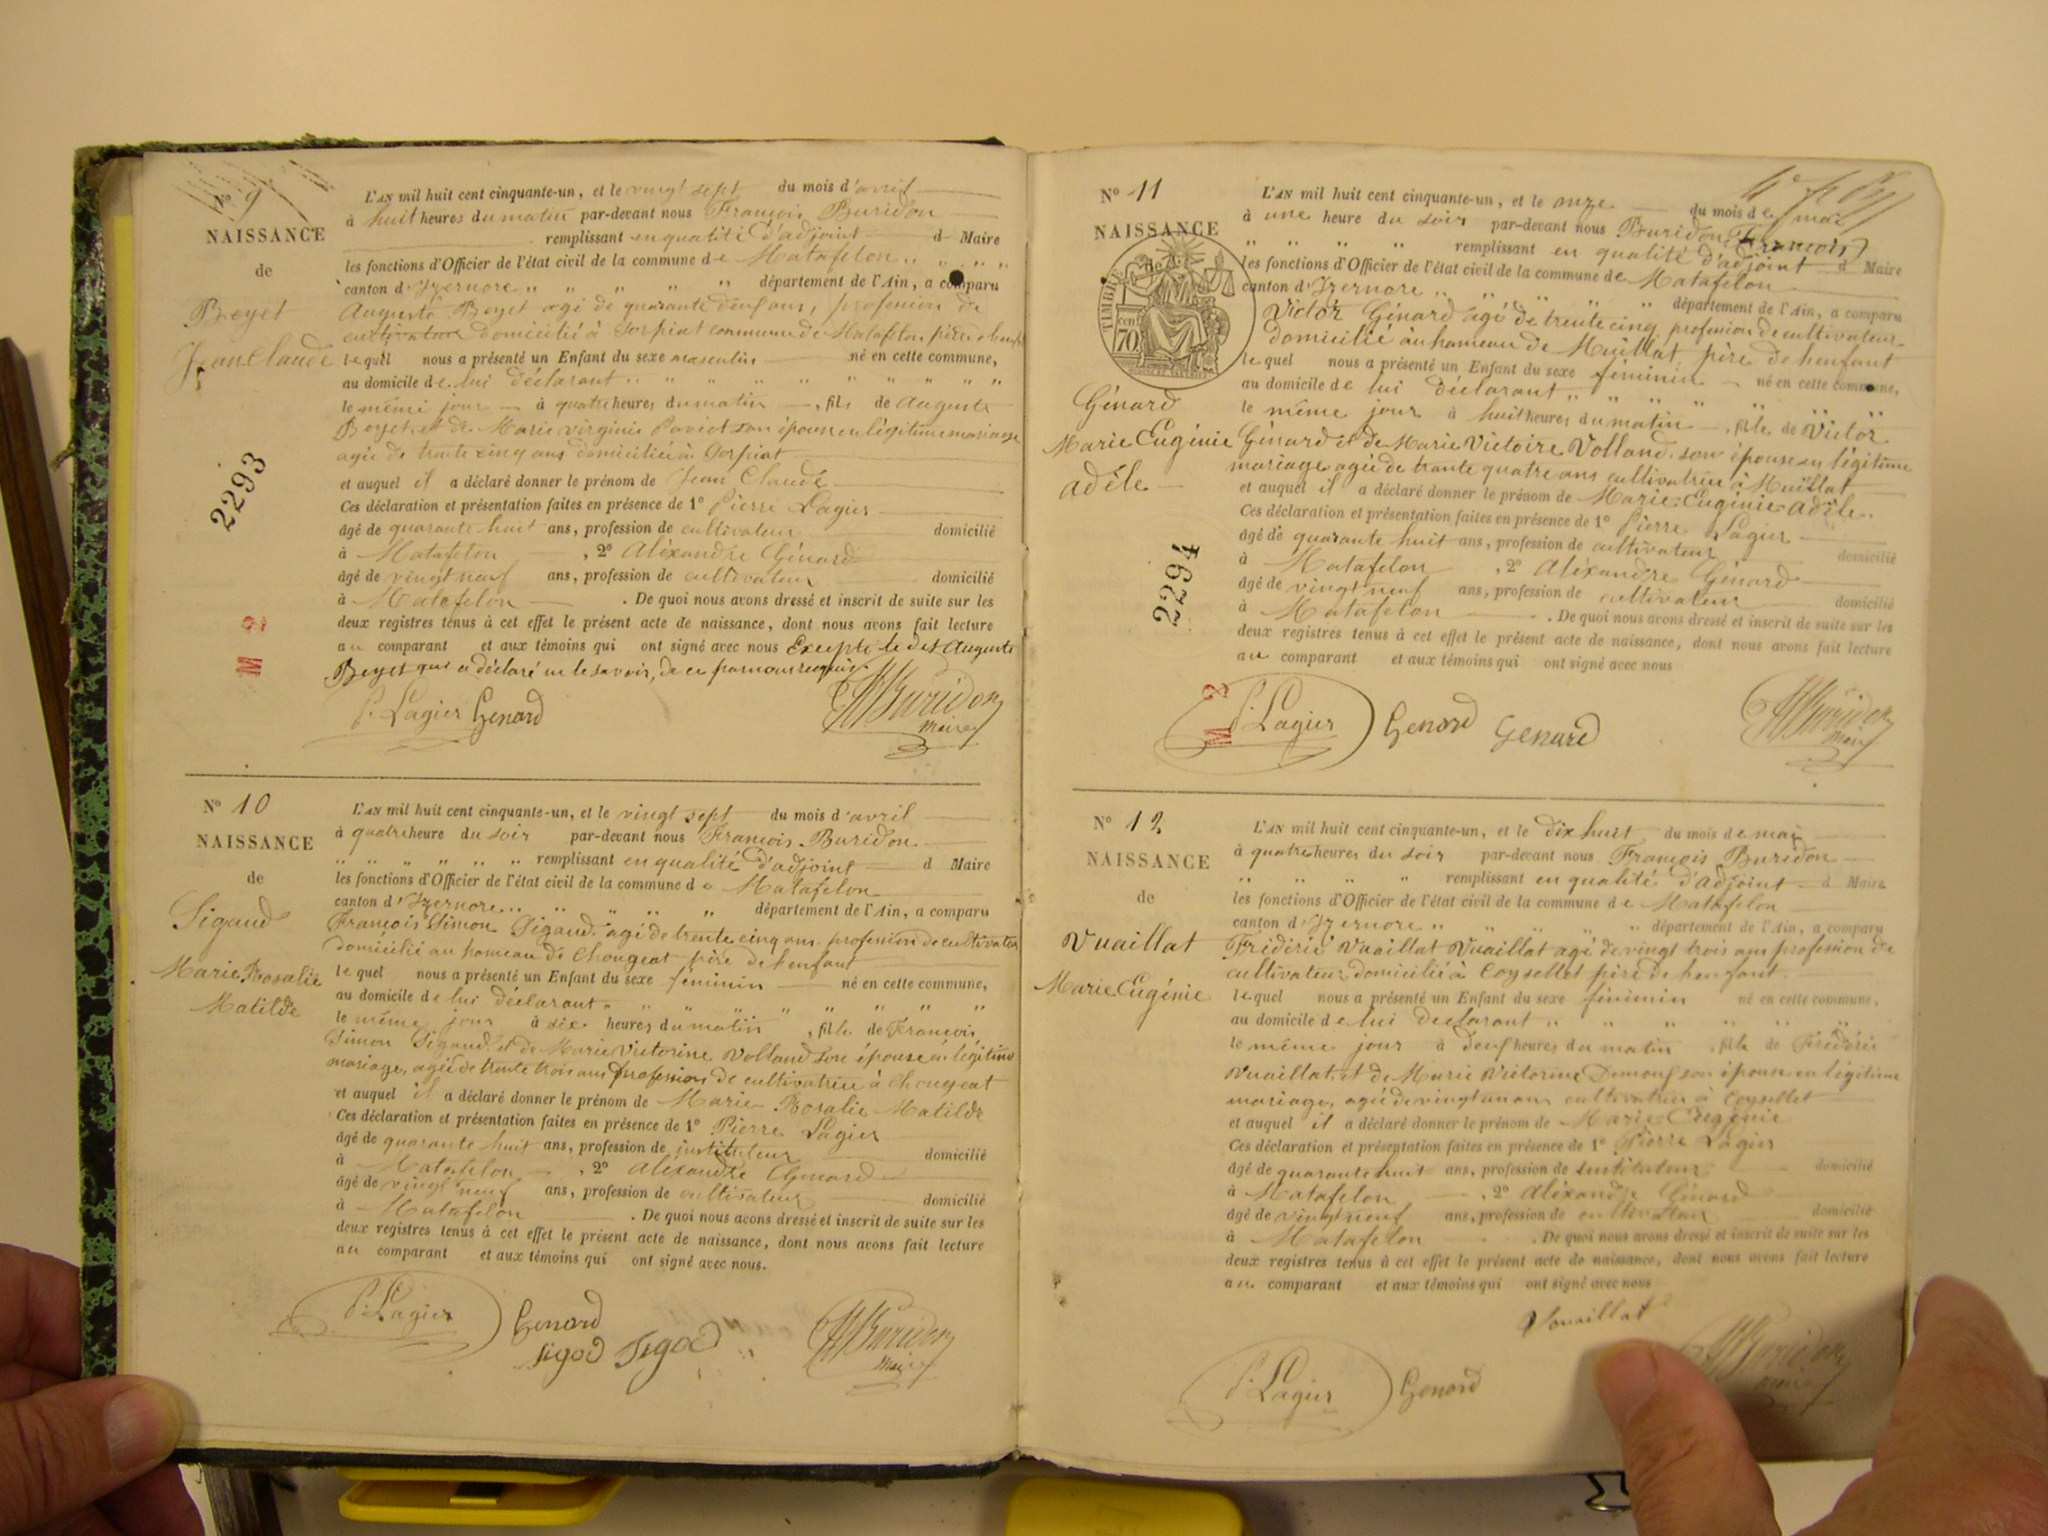 No 9
NAISSANCE
de
Beyet
Jean Claude
L'AN mil huit cent cinquante-un, et le vingt sept du mois d'avril
à huit heures du matin par-devant nous François Buridon
remplissant en qualité d'adjoint d Maire
les fonctions d'Officier de l'état civil de la commune de Matafelon
canton d'Izernore département de l'Ain, a comparu
Auguste Beyet agé de quarante deux ans, profession de
cultivateur domicilié à Corpiat commune de Matafelon, père
lequel nous a présenté un Enfant du sexe masculin né en cette commune,
au domicile de lui déclarant
le même jour à quatre heures du matin, fils de Auguste
Beyet et de Marie virginie son épouse en légitime mariage
agée de trente cinq ans domiciliée à Corpiat
et auquel il a déclaré donner le prénom de Jean Claude
Ces déclaration et présentation faites en présence de 1º Pierre Lagier
âgé de quarante huit ans, profession de cultivateur domicilié
à Matafelon, 2º Aléxandre Génard
âgé de vingt neuf ans, profession de cultivateur domicilié
à Matafelon. De quoi nous avons dressé et inscrit de suite sur les
deux registres tenus à cet effet le présent acte de naissance, dont nous avons fait lecture
au comparant et aux témoins qui ont signé avec nous Excepté le dit Auguste
Beyet qui a déclaré ne le savoir, de ce par nous requis.
P. Lagier Genard Buridon
Maire
2293
M 2
No 10
NAISSANCE
de
Sigaud
Marie Rosalie
Matilde
L'AN mil huit cent cinquante-un, et le vingt sept du mois d'avril
à quatre heure du soir par-devant nous François Buridon
remplissant en qualité d'adjoint d Maire
les fonctions d'Officier de l'état civil de la commune de Matafelon
canton d'Izernore département de l'Ain, a comparu
François Simon Sigaud agé de trente cinq ans profession de cultivateur
domicilié au hameau de Chougeat père de l'enfant
lequel nous a présenté un Enfant du sexe féminin né en cette commune,
au domicile de lui déclarant
le même jour à six heures du matin, fille de François
Simon Sigaud et de Marie Victorine Volland son épouse en légitime
mariage, agée de trente trois ans profession de cultivatrice à Chougeat
et auquel il a déclaré donner le prénom de Marie Rosalie Matilde
Ces déclaration et présentation faites en présence de 1º Pierre Lagier
âgé de quarante huit ans, profession de instituteur domicilié
à Matafelon, 2º Aléxandre Génard
âgé de vingt neuf ans, profession de cultivateur domicilié
à Matafelon. De quoi nous avons dressé et inscrit de suite sur les
deux registres tenus à cet effet le présent acte de naissance, dont nous avons fait lecture
au comparant et aux témoins qui ont signé avec nous.
P. Lagier Genard Buridon
Sigod Sigod Maire
No 11
NAISSANCE
TIMBRE
70 cent
Génard
Marie Eugénie
Adèle
L'AN mil huit cent cinquante-un, et le onze du mois de mai
à une heure du soir par-devant nous Buridon (François)
remplissant en qualité d'adjoint d Maire
les fonctions d'Officier de l'état civil de la commune de Matafelon
canton d'Izernore département de l'Ain, a comparu
Victor Génard agé de trente cinq profession de cultivateur
domicilié au hameau de Muillat père de lenfant
lequel nous a présenté un Enfant du sexe féminin né en cette commune,
au domicile de lui déclarant
le même jour à huit heures du matin, fille de Victor
Génard et de Marie Victoire Volland son épouse en légitime
mariage agée de trente quatre ans cultivatrice à Muillat
et auquel il a déclaré donner le prénom de Marie Eugénie Adèle.
Ces déclaration et présentation faites en présence de 1º Pierre Lagier
âgé de quarante huit ans, profession de cultivateur domicilié
à Matafelon, 2º Aléxandre Génard
âgé de vingt neuf ans, profession de cultivateur domicilié
à Matafelon. De quoi nous avons dressé et inscrit de suite sur les
deux registres tenus à cet effet le présent acte de naissance, dont nous avons fait lecture
au comparant et aux témoins qui ont signé avec nous
P. Lagier Genard Genard Buridon
Maire
2294
M 2
No 12
NAISSANCE
de
Vuaillat
Marie Eugénie
L'AN mil huit cent cinquante-un, et le dix huit du mois de mai
à quatre heures du soir par-devant nous François Buridon
remplissant en qualité d'adjoint d Maire
les fonctions d'Officier de l'état civil de la commune de Matafelon
canton d'Izernore département de l'Ain, a comparu
Fréderic Vuaillat Vuaillat agé de vingt trois ans profession de
cultivateur domicilié à Coysellet père de lenfant.
lequel nous a présenté un Enfant du sexe féminin né en cette commune,
au domicile de lui declarant
le même jour à deux heures du matin, fille de Fréderic
Vuaillat et de Marie Victorine son épouse en légitime
mariage, agée de vingt un ans cultivatrice à Coysellet
et auquel il a déclaré donner le prénom de Marie Eugénie
Ces déclaration et présentation faites en présence de 1º Pierre Lagier
âgé de quarante huit ans, profession de instituteur domicilié
à Matafelon, 2º Aléxandre Génard
âgé de vingt neuf ans, profession de cultivateur domicilié
à Matafelon. De quoi nous avons dressé et inscrit de suite sur les
deux registres tenus à cet effet le présent acte de naissance, dont nous avons fait lecture
au comparant et aux témoins qui ont signé avec nous
Vouaillat
P. Lagier Genard Buridon
Maire